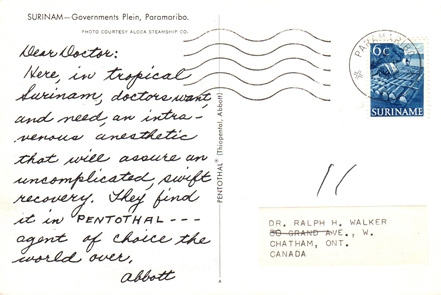 SURINAM—Governments Plein, Paramaribo.
PHOTO COURTESY ALCOA STEAMSHIP CO.
Dear Doctor:
Here, in tropical
Surinam, doctors want,
and need, an intra-
venous anesthetic
that will assure an
uncomplicated, swift
recovery. They find
it in PENTOTHAL---
agent of choice the
world over.
Abbott
PENTOTHAL® (Thiopental, Abbott)
PARAMARIBO
6c
SURINAME
11
DR. RALPH H. WALKER
80 GRAND AVE., W.
CHATHAM, ONT.
CANADA